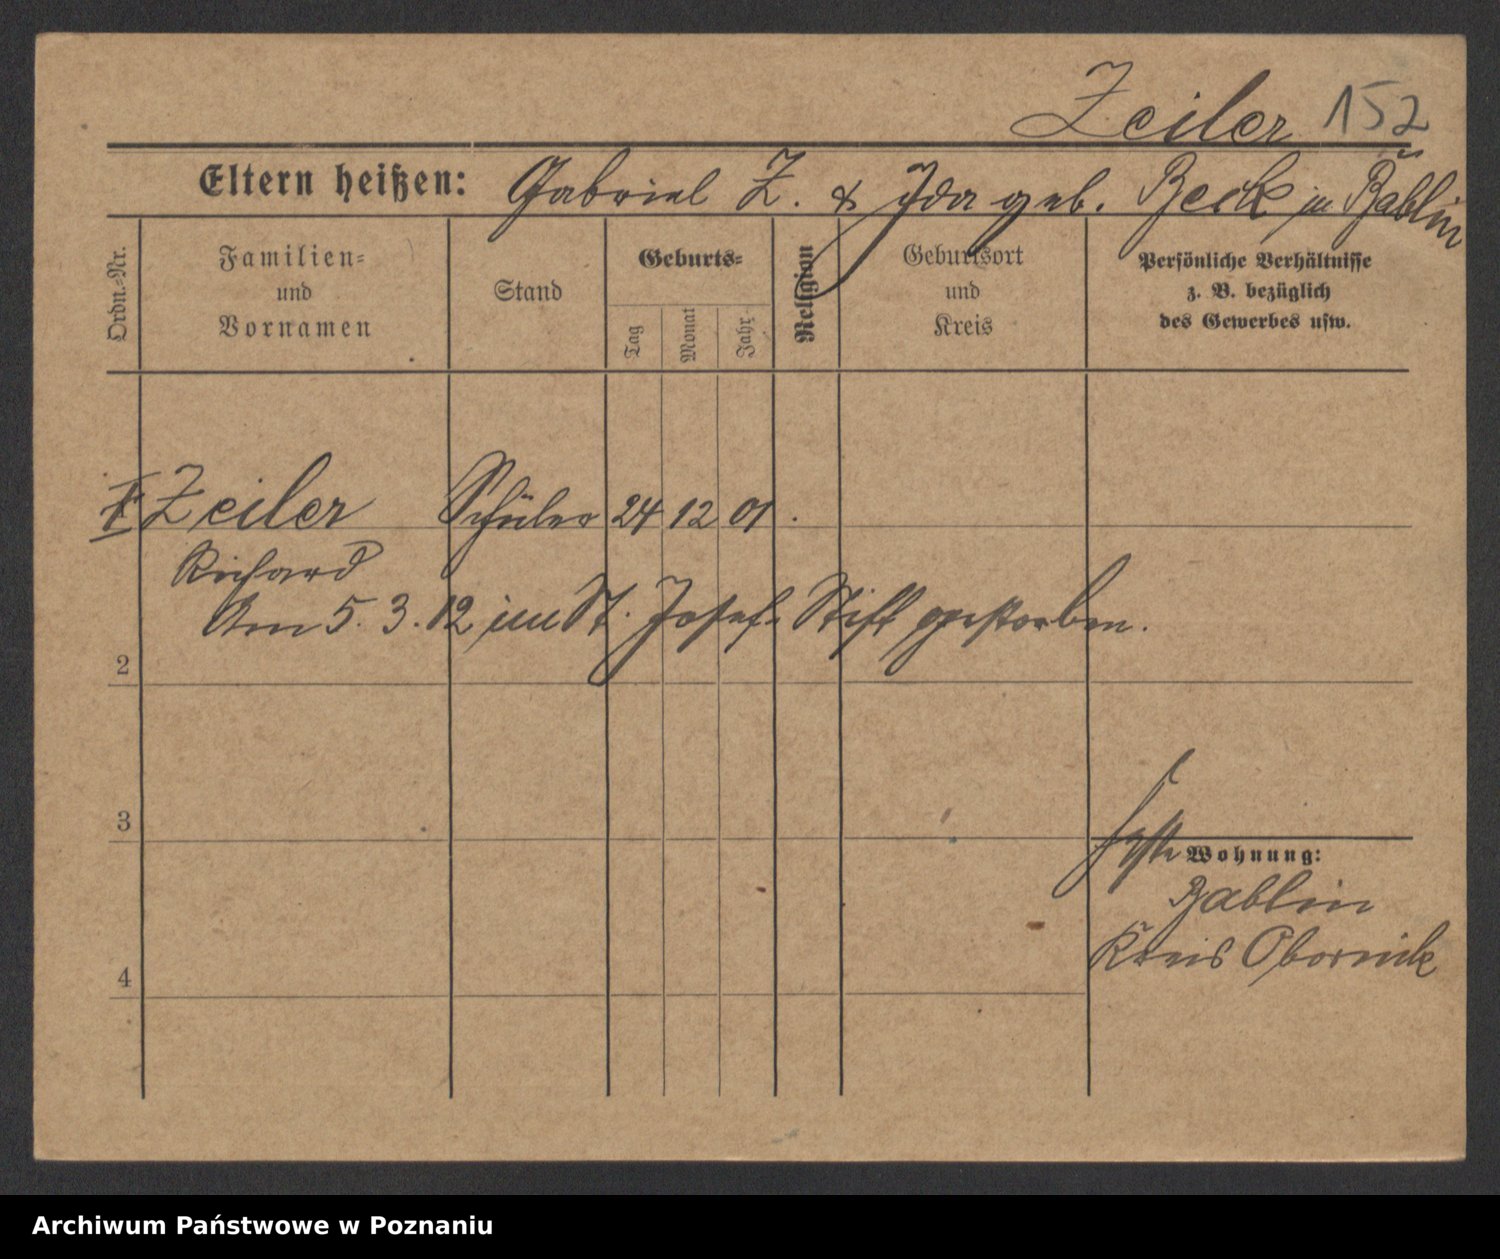 Zeiler 152
Eltern heißen: Gabriel Z. & Ida geb. Beck in Bablin
Ordn.-Nr.
Familien-
und
Vornamen
Stand
Geburts-
Tag
Monat
Jahr
Religion
Geburtsort
und
Kreis
Persönliche Verhältnisse
z. B. bezüglich
des Gewerbes usw.
Zeiler Schüler 24 12 01.
Richard
Am 5. 3. 12 im St. Josef-Stift gestorben.
2
3
4
Wohnung:
Bablin
Kreis Obornick
Archiwum Państwowe w Poznaniu